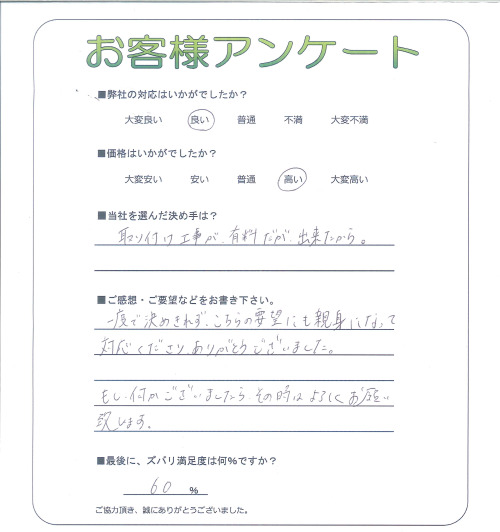 お客様アンケート
■弊社の対応はいかがでしたか?
大変良い 良い 普通 不満 大変不満
■価格はいかがでしたか?
大変安い 安い 普通 高い 大変高い
■当社を選んだ決め手は?
取り付け工事が、有料だが、出来たから。
■ご感想・ご要望などをお書き下さい。
一度で決めきれず、こちらの要望にも親身になって
対応くださり、ありがとうございました。
もし、何かございましたら、その時はよろしくお願い
致します。
■最後に、ズバリ満足度は何%ですか?
60 %
ご協力頂き、誠にありがとうございました。